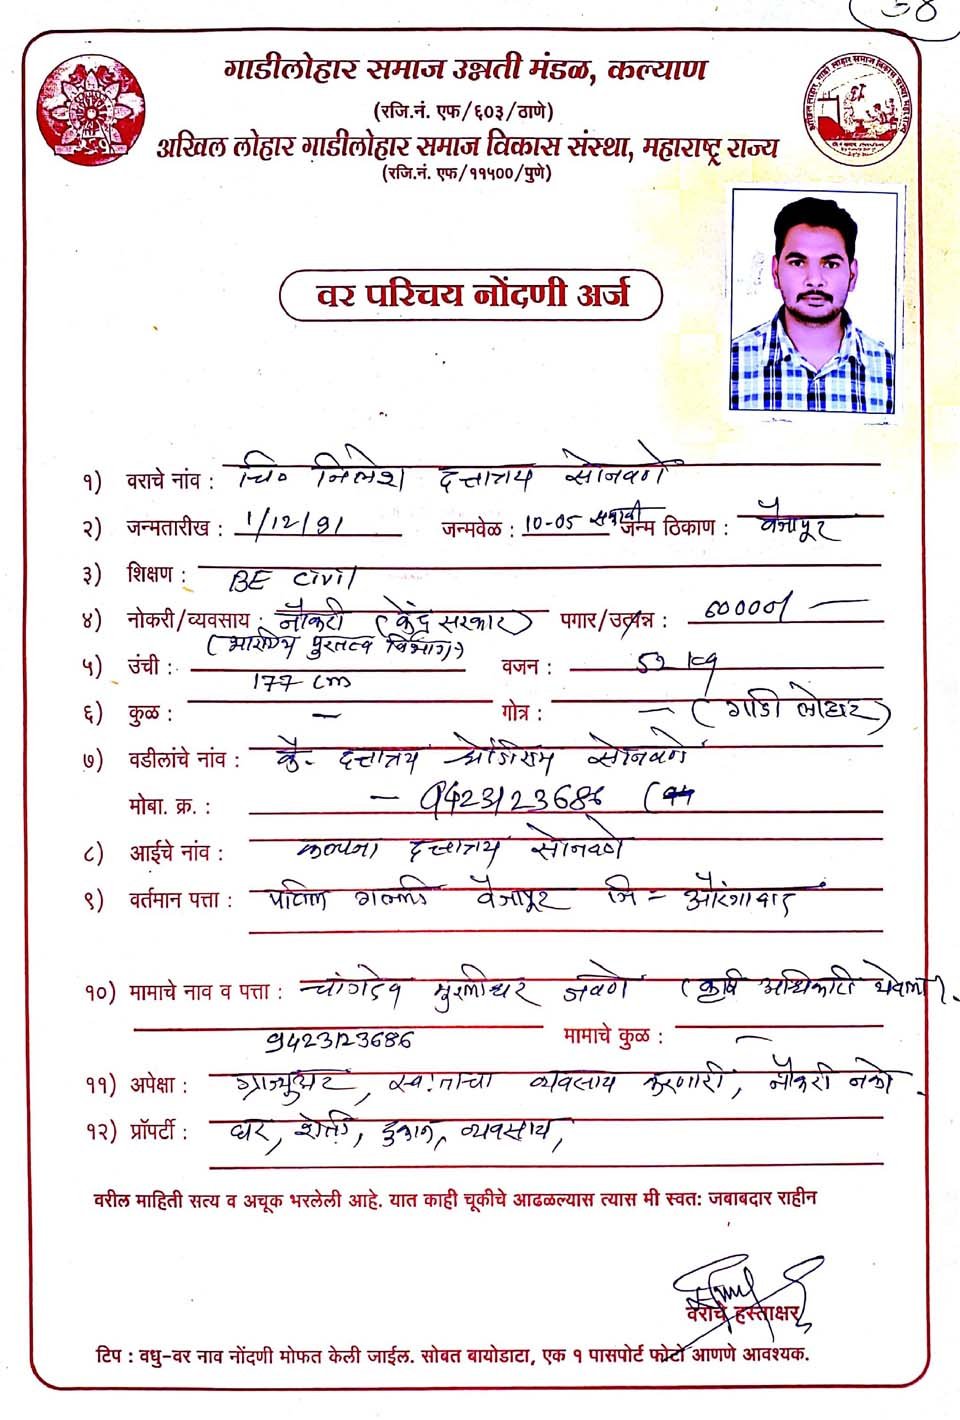 38
गाडीलोहार समाज उन्नती मंडळ, कल्याण
(रजि.नं. एफ/६०३/ठाणे)
अखिल लोहार गाडीलोहार समाज विकास संस्था, महाराष्ट्र राज्य
(रजि.नं. एफ/११५००/पुणे)
वर परिचय नोंदणी अर्ज
१) वराचे नांव : चि० निलेश दत्तात्रय सोनवणे
२) जन्मतारीख : 1/12/91 जन्मवेळ : 10-05 सकाळी जन्म ठिकाण : वैजापूर
३) शिक्षण : BE civil
४) नोकरी/व्यवसाय : नौकरी (केंद्र सरकार) पगार/उत्पन्न : 60000/-
(भारतिय पुरातत्व विभाग)
५) उंची : 177 cm वजन : 52 kg
६) कुळ : — गोत्र : — (गाडी लोहार)
७) वडीलांचे नांव : कै- दत्तात्रय सोनवणे
मोबा. क्र. : — 9423123686
८) आईचे नांव : कल्पना दत्तात्रय सोनवणे
९) वर्तमान पत्ता : पाटिल गल्ली वैजापूर जि - औरंगाबाद
१०) मामाचे नाव व पत्ता : चांगदेव मुरलीधर जवणे (कृषि अधिकारी येवला).
9423123686 मामाचे कुळ : —
११) अपेक्षा : ग्राज्युअट, स्व:ताचा व्यवसाय करणारी, नौकरी नको.
१२) प्रॉपर्टी : घर, शेती, दुकान, व्यवसाय,
वरील माहिती सत्य व अचूक भरलेली आहे. यात काही चूकीचे आढळल्यास त्यास मी स्वत: जबाबदार राहीन
वराचे हस्ताक्षर
टिप : वधु-वर नाव नोंदणी मोफत केली जाईल. सोबत बायोडाटा, एक १ पासपोर्ट फोटो आणणे आवश्यक.